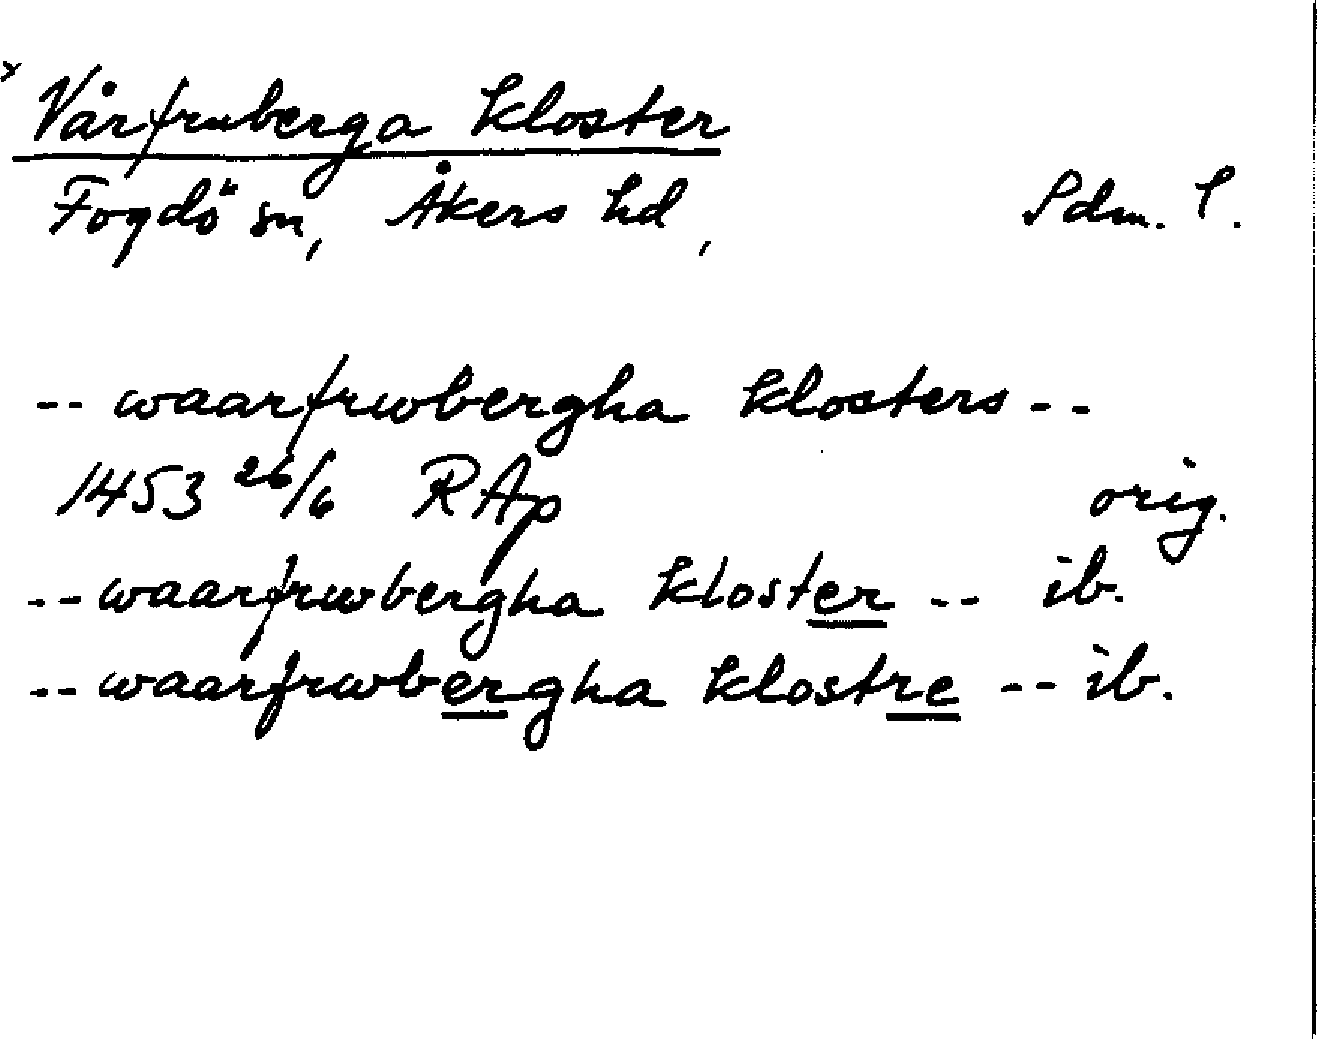 x Vårfruberga kloster
Fogdö sn, Åkers hd, Sdm. l.
-- waarfrwbergha klosters --
1453 26/6 RAp orig.
-- waarfrwbergha kloster -- ib.
-- waarfrwbergha klostre -- ib.